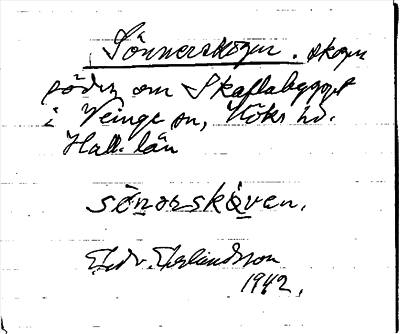 Sönnerskogen. skogen
söder om Skaftabygget
i Veinge sn, Höks hd.
Hall. län
sönorskòven.
Edv. Erlandsson
1942.